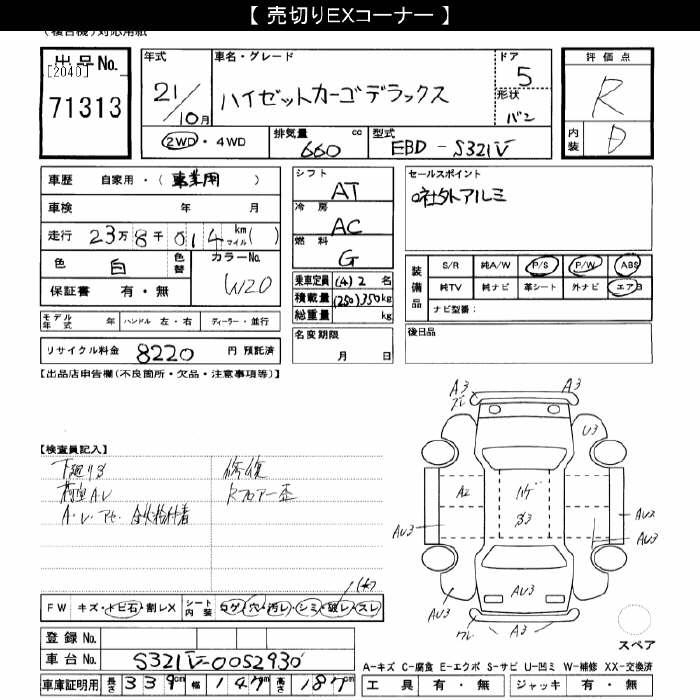 【 売切りEXコーナー 】
(複合機)対応用紙
出品No.
[2040]
71313
年式
21/10月
車名・グレード
ハイゼットカーゴデラックス
ドア
5
形状
バン
評価点
R
内装
D
2WD・4WD
排気量 660 cc
型式 EBD-S321V
車歴 自家用・(事業用)
車検 年 月
走行 23万8千014 km マイル( )
色 白
色替
カラーNo. W20
保証書 有・無
モデル年式 年 ハンドル 左・右 ディーラー・並行
リサイクル料金 8220 円 預託済
シフト AT
冷房 AC
燃料 G
乗車定員 (4) 2 名
積載量 (250)350kg
総重量 kg
名変期限
月 日
セールスポイント
○社外アルミ
装備品
S/R 純A/W P/S P/W ABS
純TV 純ナビ 革シート 外ナビ エアB
ナビ型番：
後日品
【出品店申告欄(不良箇所・欠品・注意事項等)】
【検査員記入】
下廻りサビ
修復
Rフロアー歪
FW キズ・トビ石・割レX
シート内装 コゲ・穴・汚レ・シミ・破レ・スレ
A3
A3
U3
A2
ハゲ
AU2
AU3
AU3
AU3
AU3
AU3
ワレ
A3
スペア
登録No.
車台No. S321V-0052930
車庫証明用 長さ 339cm 幅 147cm 高さ 187cm
A-キズ C-腐食 E-エクボ S-サビ U-凹ミ W-補修 XX-交換済
工具 有・無 ジャッキ 有・無